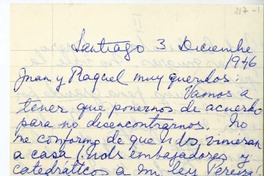 217-1
Santiago 3. Diciembre
1946
Juan y Raquel muy queridos:
Vamos a
tener que ponernos de acuerdo
para no desencontrarnos. No
me conformo de que Uds. vinieran
a casa (Uds embajadores y
catedráticos a mi